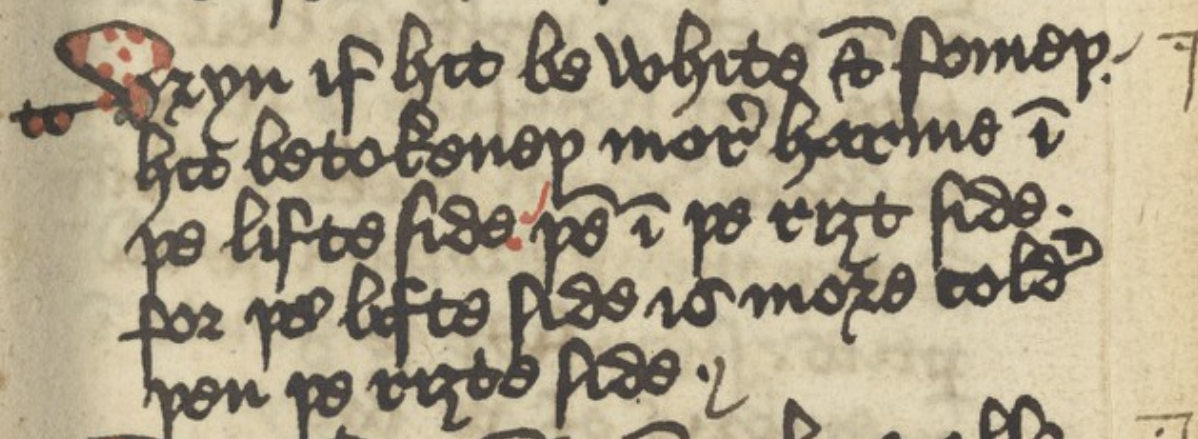 Vryn if hit be white & fomeþ.
hit betokeneþ mor̉ harme ī
þe lifte side þē ī þe riȝt side.
for þe lifte side is more cold
þen þe riȝte side.